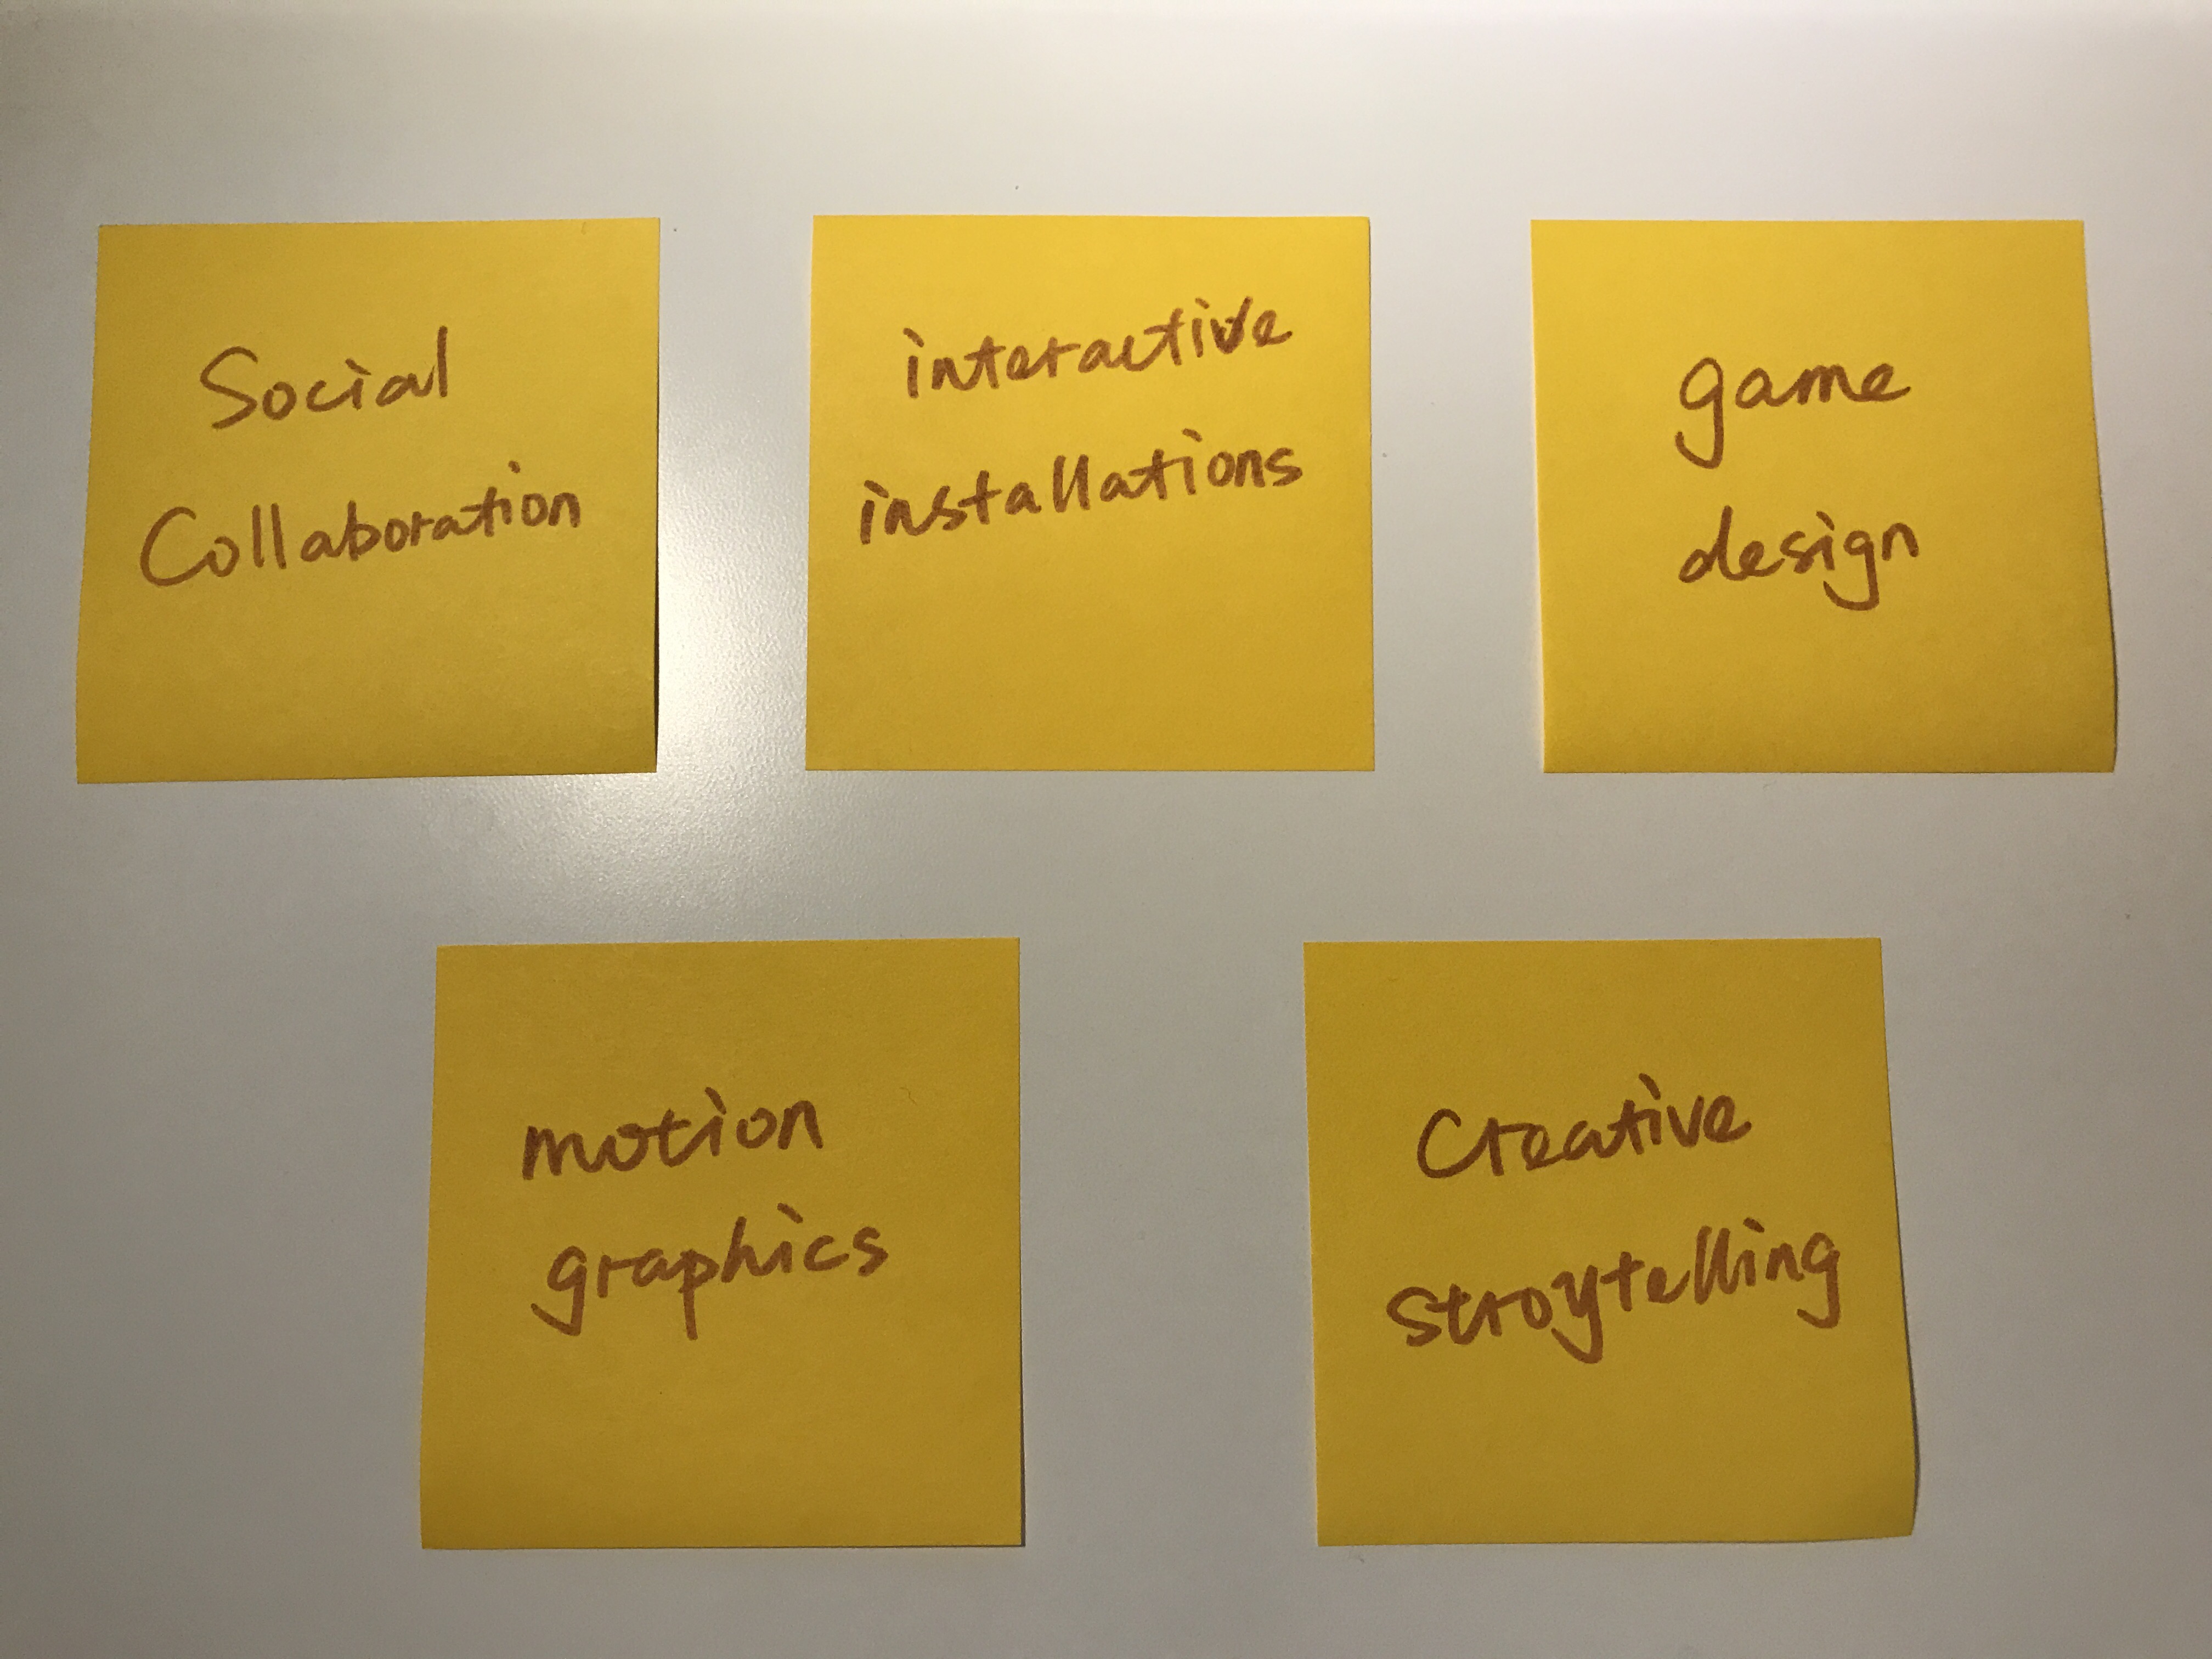 Social
Collaboration
interactive
installations
game
design
motion
graphics
Creative
stroytelling